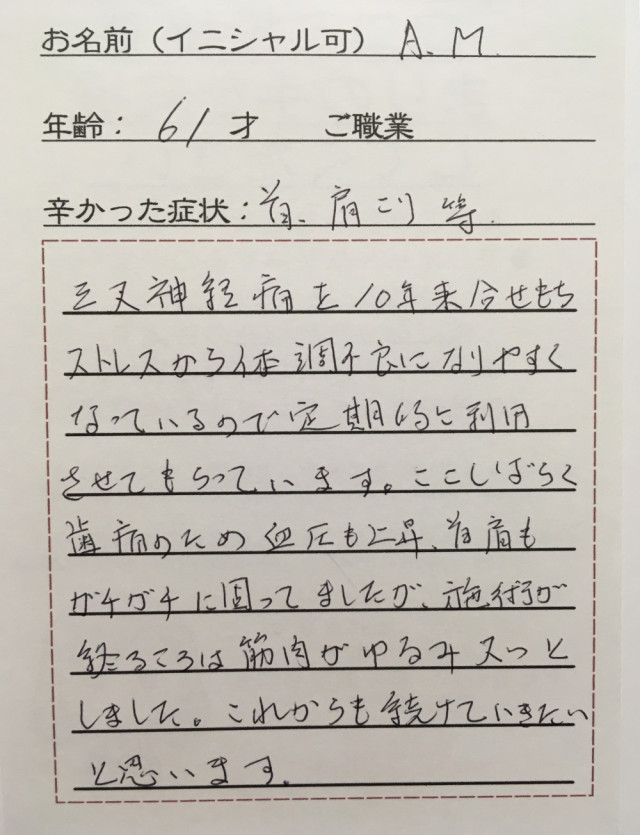 お名前（イニシャル可） A.M.
年齢： 61才 ご職業
辛かった症状：首、肩こり 等.
三叉神経痛を10年来合せもち
ストレスから体調不良になりやすく
なっているので定期的に利用
させてもらっています。ここしばらく
歯痛のため血圧も上昇、首肩も
ガチガチに固ってましたが、施術が
終るころは筋肉がゆるみスッと
しました。これからも続けていきたい
と思います。